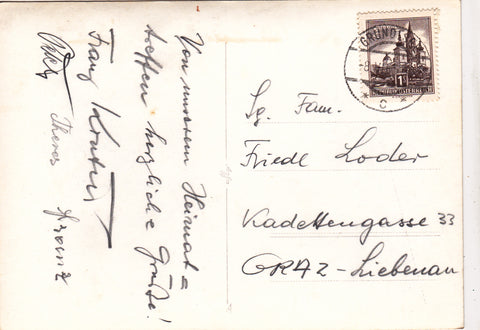 Von unserem Heimat=
treffen herzliche Grüße!
Franz
Theres
GRUND
8
C
1S
REPUBLIK ÖSTERREICH
Sg. Fam.
Friedl Loder
Kadettengasse 33
GRAZ-Liebenau